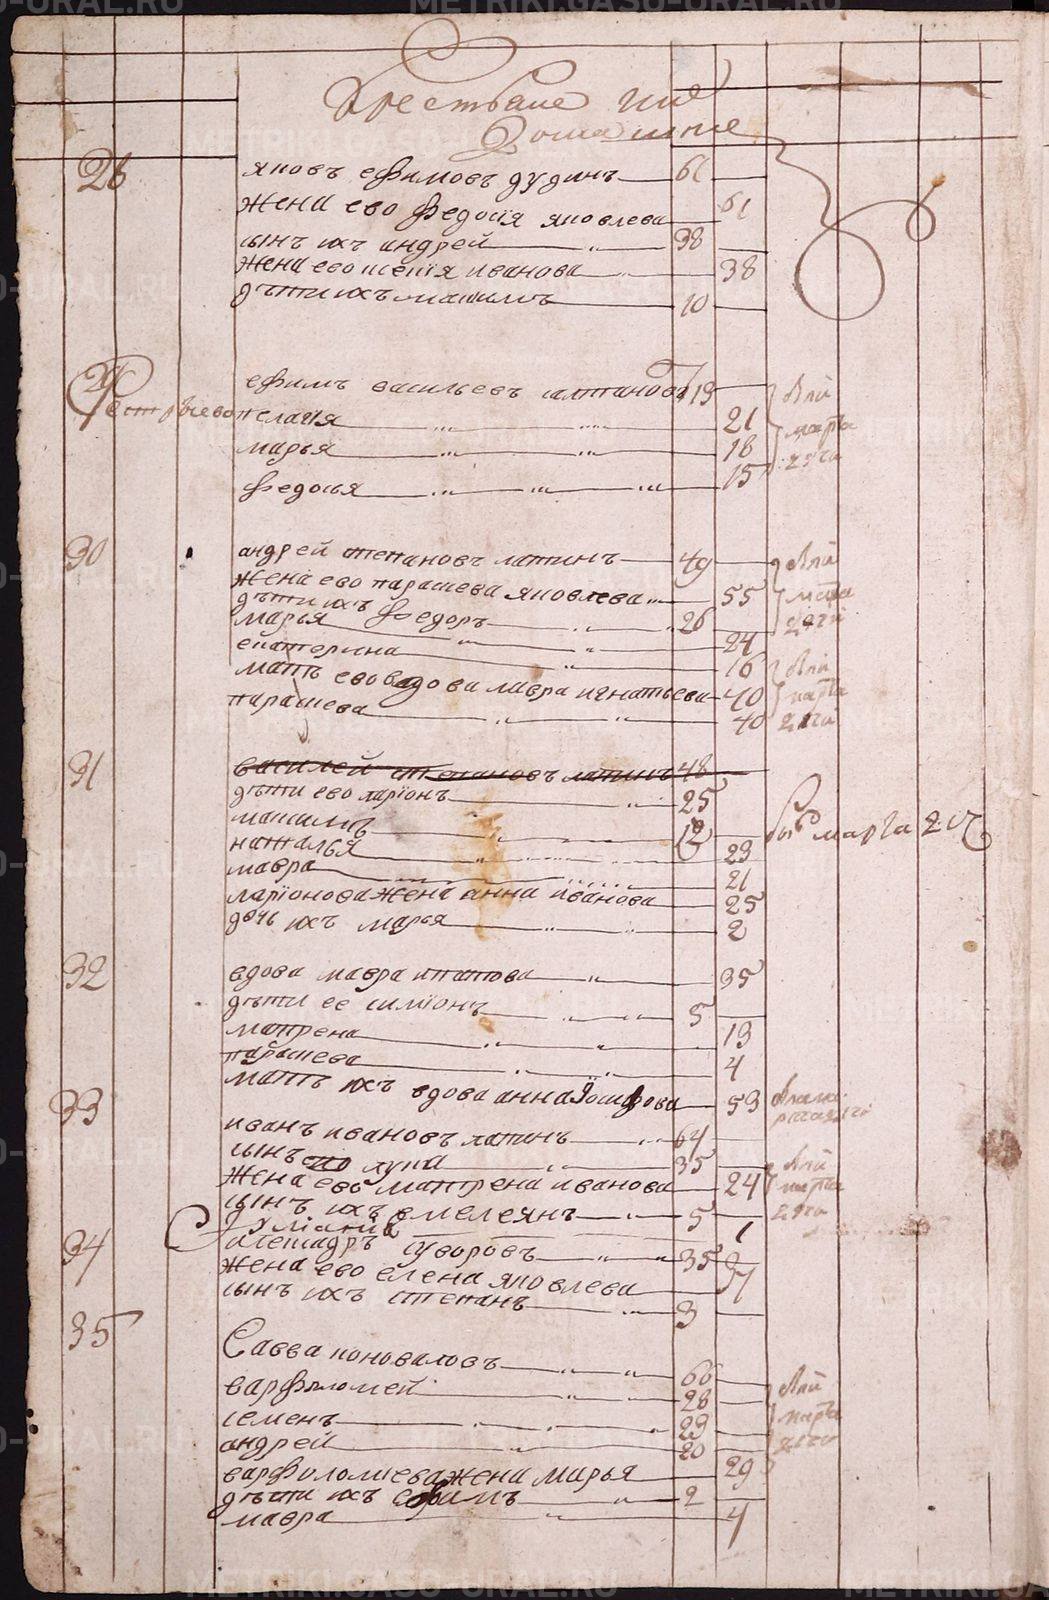 Крестьяне
28 яковъ ефимовъ дудинъ 61
жена ево федосїя яковлева 61
сынъ ихъ андрей 38
жена ево ксенїя иванова 38
дѣти ихъ максимъ 10
29 ефимъ васильевъ 19
пелагїя 21
марья 18
федосья 15
марта
30 андрей степановъ лапинъ 49
жена ево параскева яковлева 55
дѣти ихъ федоръ 26
марья 24
екатерина 16
мать ево вдова мавра игнатьева 40
параскева 40
марта
31 василей степановъ лапинъ 48
дѣти ево ларїонъ 25
максимъ 12
наталья 23
мавра 21
ларїонова жена анна иванова 25
дочь ихъ марья 2
марта
32 вдова мавра ипатова 35
дѣти ее симїонъ 5
матрена 13
параскева 4
мать ихъ вдова анна 53
33 иванъ ивановъ лапинъ 64
сынъ ево лука 35
жена ево матрена иванова 24
сынъ ихъ емелеянъ 5
1
34 суворовъ 35
жена ево елена яковлева
сынъ ихъ степанъ 3
35 Савва коноваловъ 66
варфоломей 28
семенъ 23
андрей 20
варфоломиева жена марья 29
дѣти ихъ ефимъ 2
мавра 4